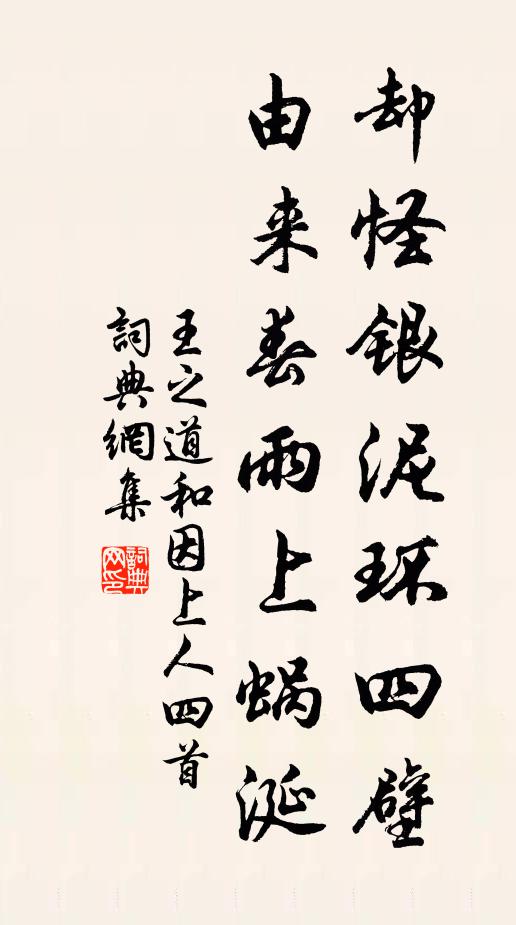 却怪银泥环四壁
由来春雨上蜗涎
王之道和因上人四首
詞典網集
詞典网印